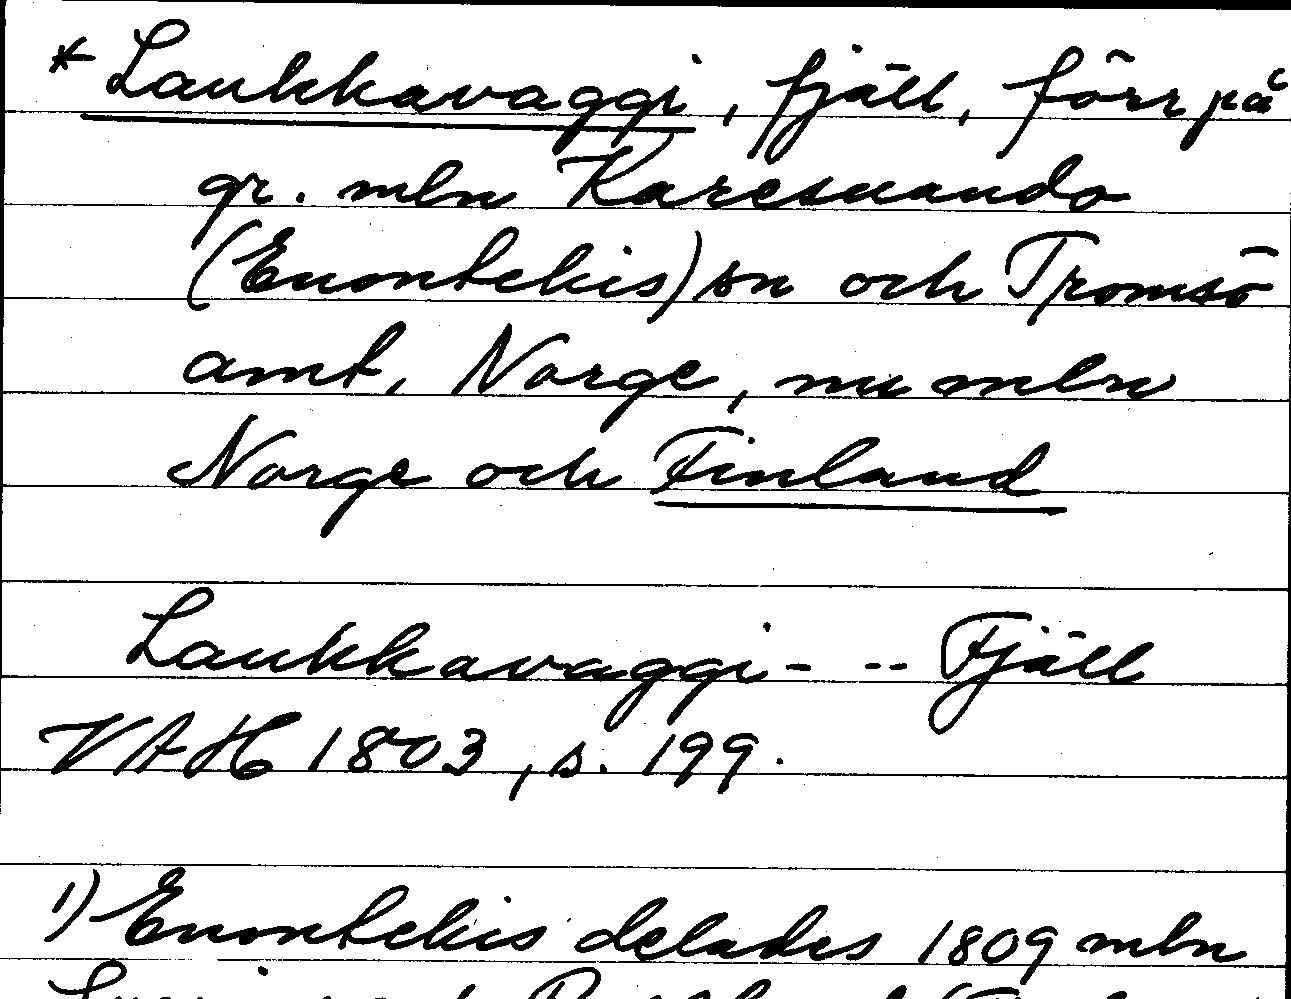 * Laukkavaggi, fjäll, förr på
gr. mln Karesuando
(Enontekis) sn och Tromsö
amt, Norge, nu mln
Norge och Finland
Laukkavaggi - -- Fjäll
VAH 1803, s. 199.
1) Enontekis delades 1809 mln